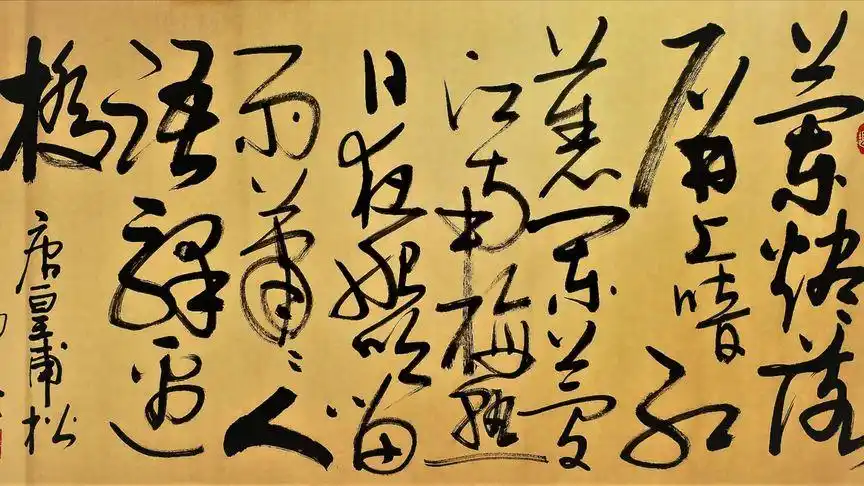 蘭燼落
屏上暗紅
蕉閒夢
江南梅熟
日夜船吹笛
雨蕭々人
語驛邊
橋
唐皇甫松